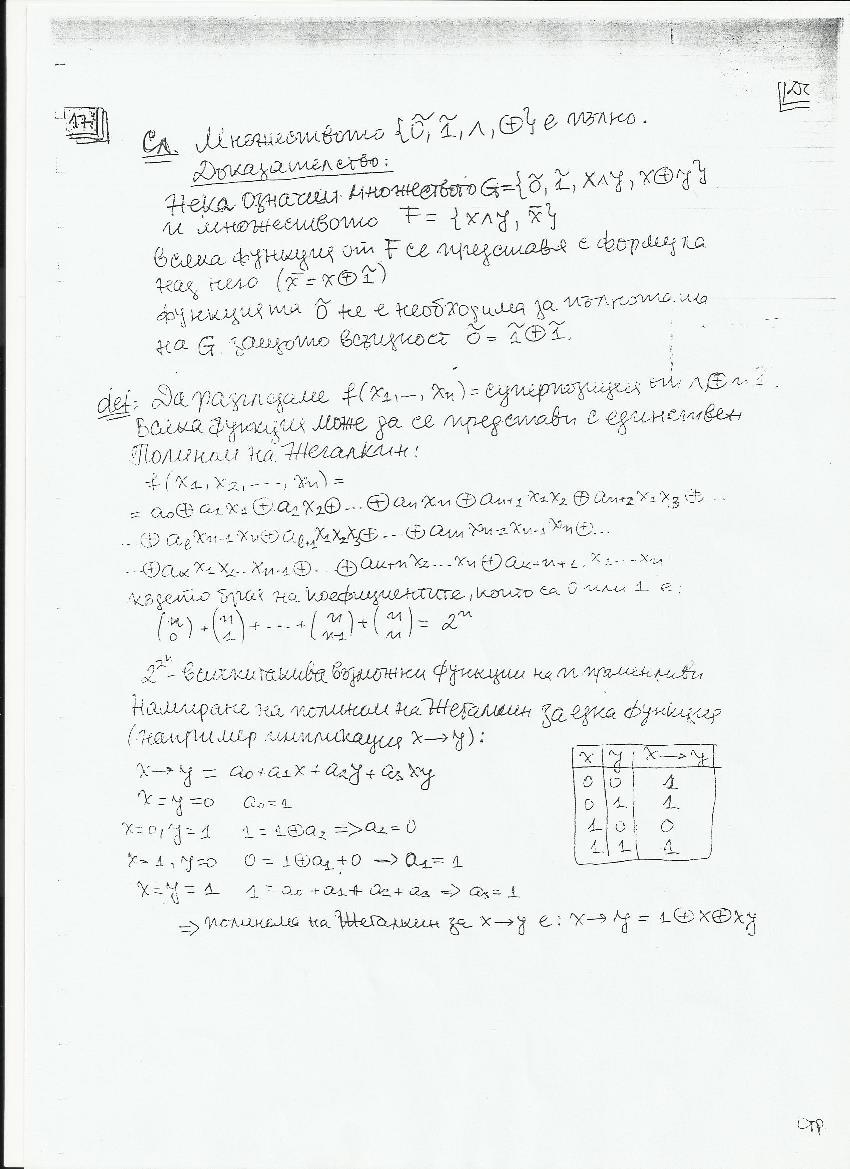 17.
Сл. Множеството {õ, 1̃, ∧, ⊕} е пълно.
Доказателство:
Нека означим множеството G={õ, 1̃, x∧y, x⊕y}
и множеството F = {x∧y, x̄}
Всяка функция от F се представя с формула
над него (x̄ = x⊕1̃)
функцията õ не е необходима за пълнотата
на G защото всъщност õ = 1̃⊕1̃.
def: Да разгледаме f(x1,..,xn) = суперпозиция от ∧,⊕ и 1̃.
Всяка функция може да се представи с единствен
Полином на Жегалкин:
f(x1, x2, ..., xn) =
= a0⊕a1x1⊕a2x2⊕...⊕anxn⊕an+1x1x2⊕an+2x1x3⊕...
..⊕alxn-1xn⊕al+1x1x2x3⊕...⊕amxn-2xn-1xn⊕...
..⊕akx1x2..xn-1⊕..⊕ak+nx2...xn⊕ak+n+1.x1...xn
където броя на коефициентите, които са 0 или 1 е:
(n 0) + (n 1) + ... + (n n-1) + (n n) = 2^n
2^2^n - всички такива възможни функции на n променливи
Намиране на полином на Жегалкин за една функция
(например импликация x→y):
x→y = a0+a1x+a2y+a3xy
x=y=0 a0=1
x=0, y=1 1=1⊕a2 => a2=0
x=1, y=0 0=1⊕a1+0 → a1=1
x=y=1 1=a0+a1+a2+a3 => a3=1
x y x→y
0 0 1
0 1 1
1 0 0
1 1 1
=> полинома на Жегалкин за x→y е: x→y = 1⊕x⊕xy
стр